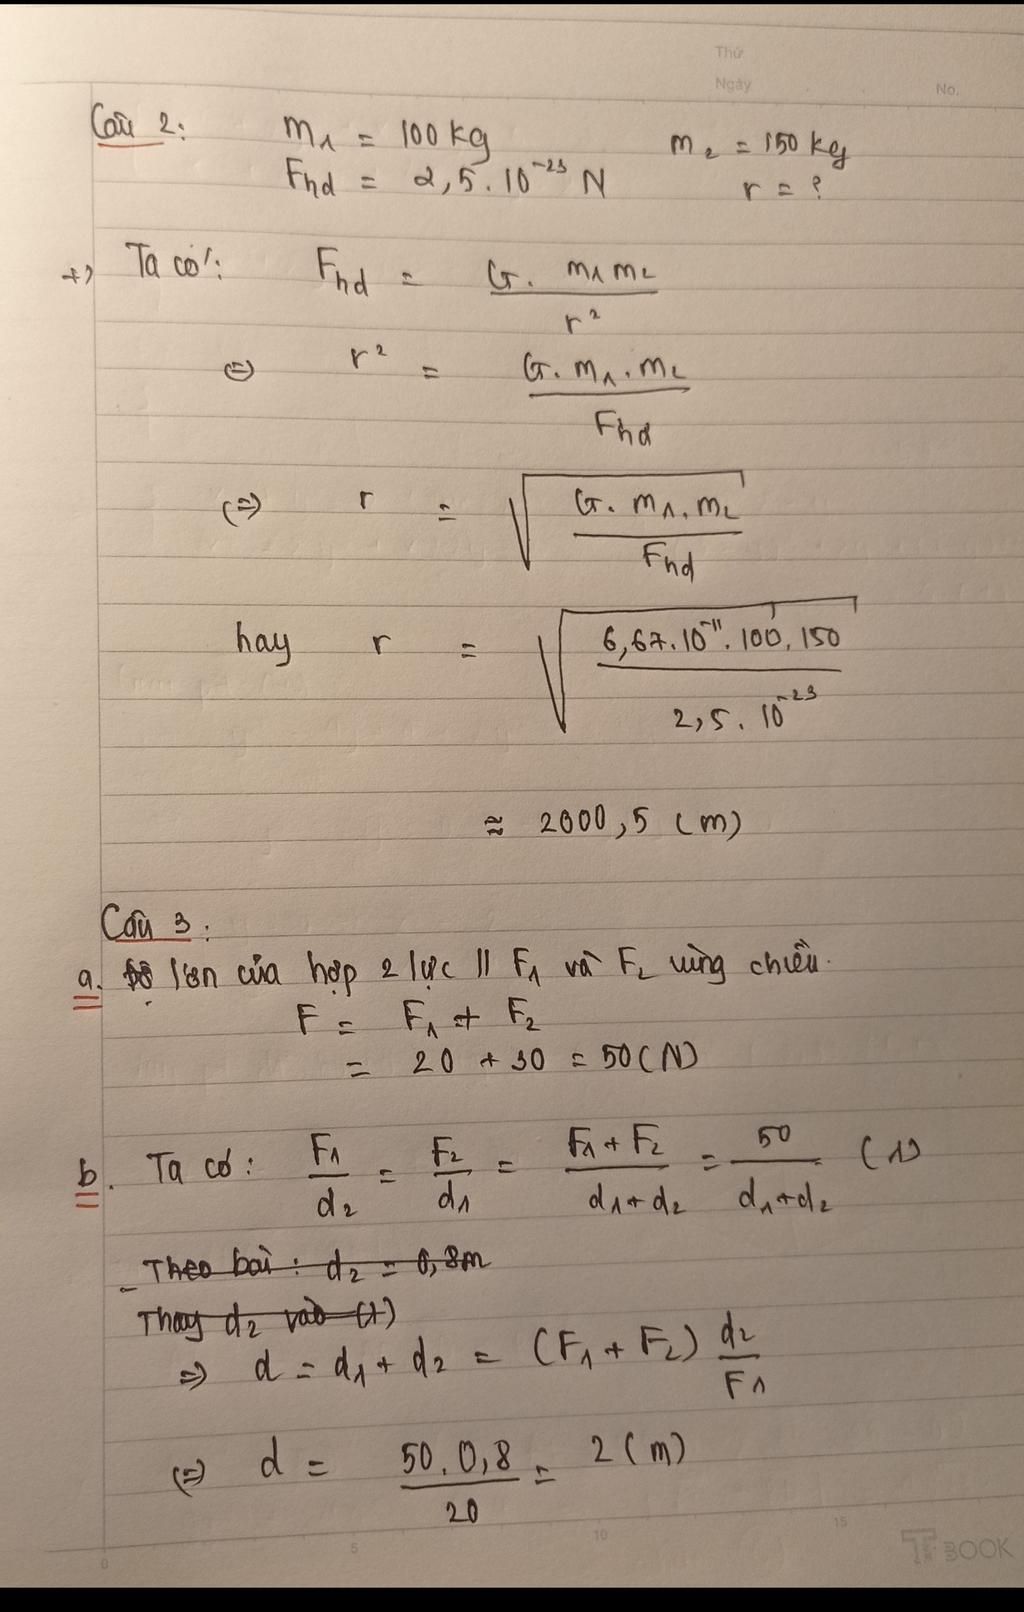 Thứ
Ngày
No.
Câu 2: m₁ = 100 kg m₂ = 150 kg
Fhd = 2,5.10⁻²³ N r = ?
+) Ta có: Fhd = G. m₁m₂ / r²
⇔ r² = G.m₁.m₂ / Fhd
⇔ r = √(G.m₁.m₂ / Fhd)
hay r = √(6,67.10⁻¹¹.100.150 / 2,5.10⁻²³)
≈ 2000,5 (m)
Câu 3:
a. Độ lớn của hợp 2 lực // F₁ và F₂ cùng chiều.
F = F₁ + F₂
= 20 + 30 = 50 (N)
b. Ta có: F₁/d₂ = F₂/d₁ = (F₁+F₂)/(d₁+d₂) = 50/(d₁+d₂) (1)
- Theo bài: d₂ = 0,8m
Thay d₂ vào (1)
⇒ d = d₁ + d₂ = (F₁ + F₂) d₂/F₁
⇔ d = 50.0,8 / 20 = 2 (m)
0 5 10 15
TBOOK